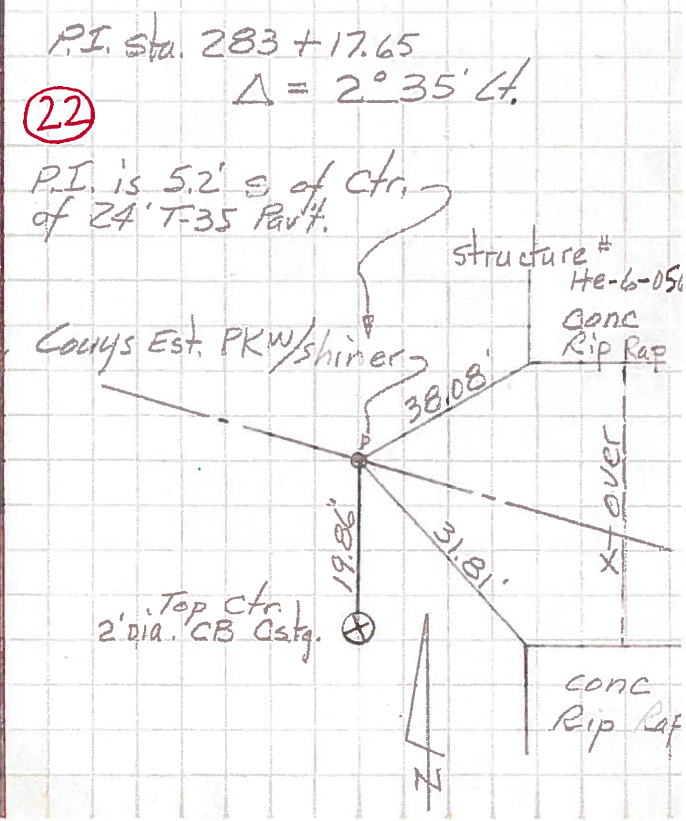 P.I. sta. 283+17.65
Δ = 2°35' Lt.
22
P.I. is 5.2' S of Ctr.
of 24' T-35 Pav't.
structure #
He-6-056
conc
Rip Rap
Est. PKW/shiner
38.08'
X-over
19.86'
31.81'
Top Ctr.
2' Dia. CB Cstg.
conc
Rip Rap
N